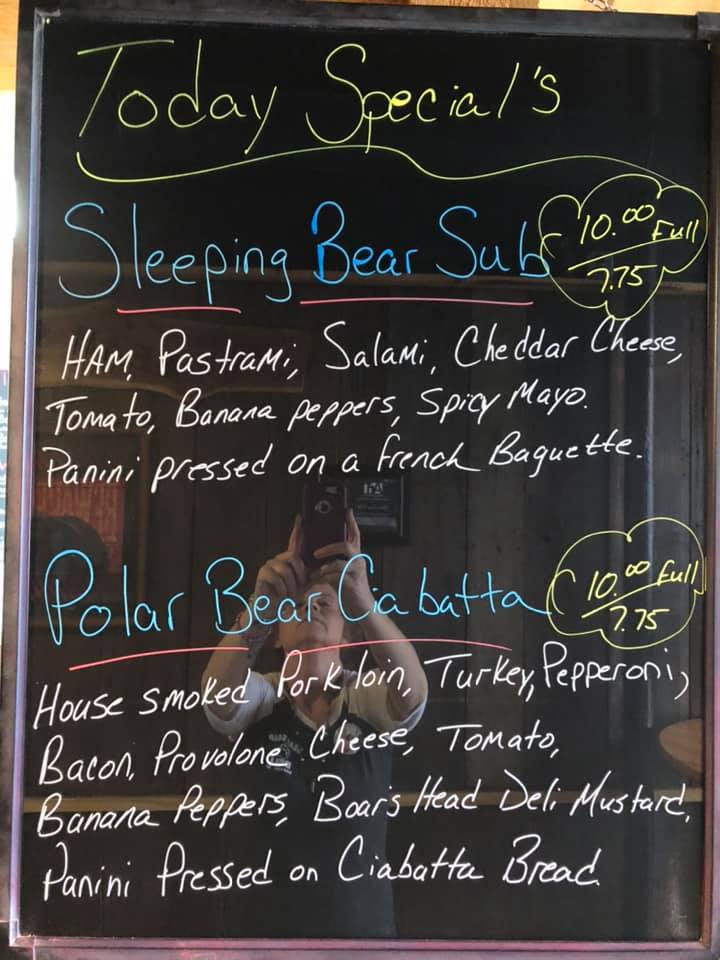 Today Special's
Sleeping Bear Sub
10.00 Full
7.75
HAM, Pastrami, Salami, Cheddar Cheese,
Tomato, Banana peppers, Spicy Mayo.
Panini pressed on a french Baguette.
Polar Bear Ciabatta
10.00 full
7.75
House smoked Pork loin, Turkey, Pepperoni,
Bacon, Provolone Cheese, Tomato,
Banana Peppers, Boar's Head Deli Mustard,
Panini Pressed on Ciabatta Bread